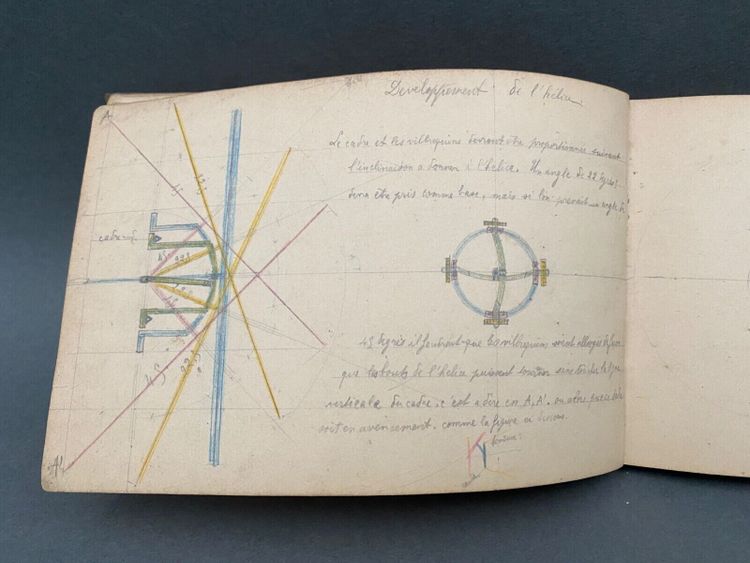 Developpement de l'hélice
Le cadre et les vilbrequins devront être proportionnés suivant
l'inclinaison a donner à l'hélice. Un angle de 22 degrés ½
devra être pris comme base, mais si l'on prenait un angle de
45 degrés il faudrait que les vilbrequins soient allonges
que les bouts de l'helice puissent tourner sans toucher la ligne
verticale du cadre, c'est a dire en A, A'. ou alors que
soit en avancement. comme la figure ci dessous.
A
45
22.5
cadre
45
22.5
45
45
22.5
A'